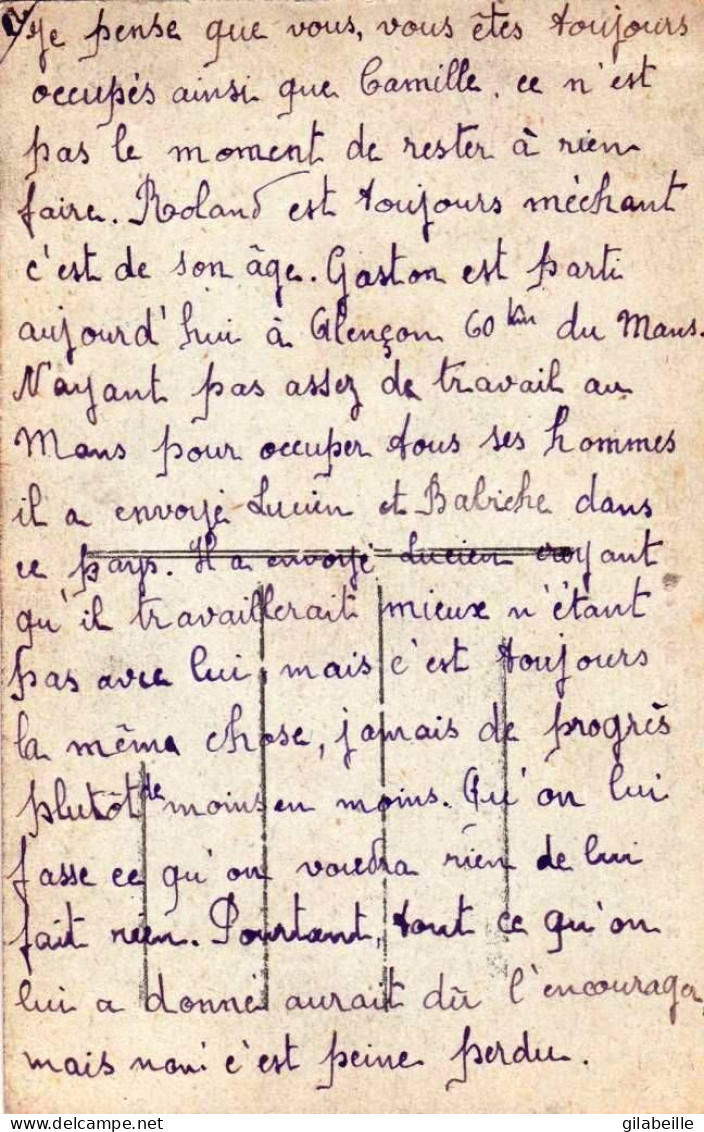 2/ Je pense que vous, vous êtes toujours
occupés ainsi que Camille, ce n'est
pas le moment de rester à rien
faire. Roland est toujours méchant
c'est de son âge. Gaston est parti
aujourd'hui à Alençon 60 km du Mans.
N'ayant pas assez de travail au
Mans pour occuper tous ses hommes
il a envoyé Lucien et Babiche dans
ce pays. Il a envoyé Lucien croyant
qu'il travaillerait mieux n'étant
pas avec lui, mais c'est toujours
la même chose, jamais de progrès
plutôt de moins en moins. Qu'on lui
fasse ce qu'on voudra rien de lui
fait rien. Pourtant, tout ce qu'on
lui a donné aurait dû l'encourager
mais non! c'est peine perdu.
delcampe.net
gilabeille